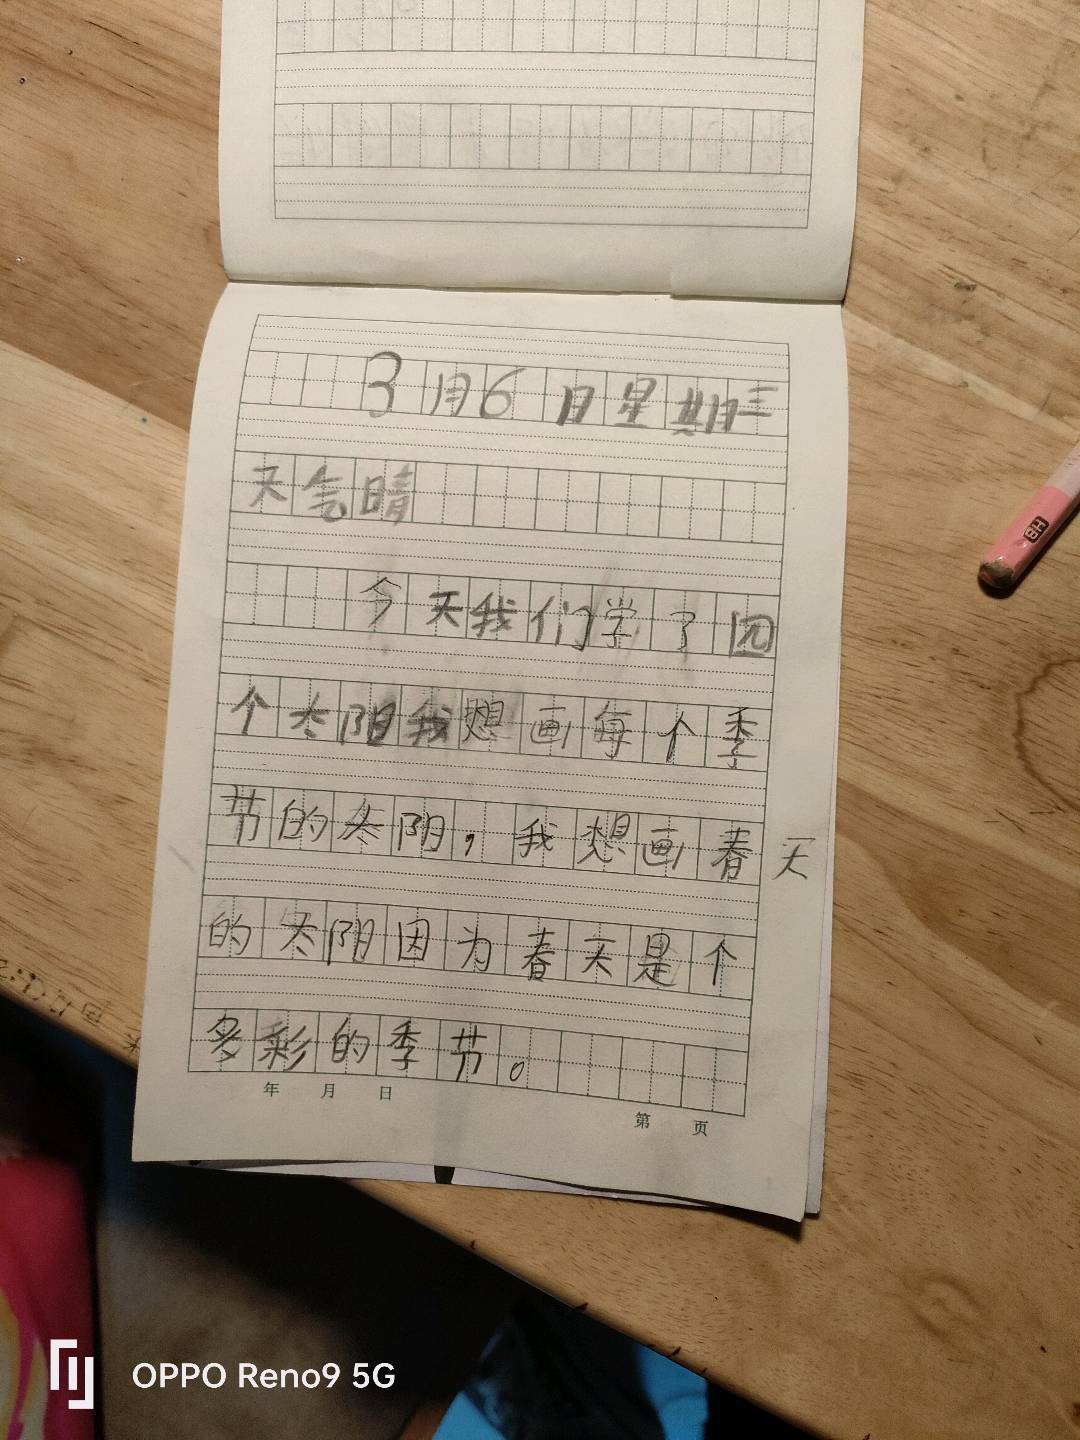 3月6日星期三
天气晴
今天我们学了四
个太阳我想画每个季
节的太阳，我想画春天
的太阳因为春天是个
多彩的季节。
年 月 日
第 页
HB
OPPO Reno9 5G